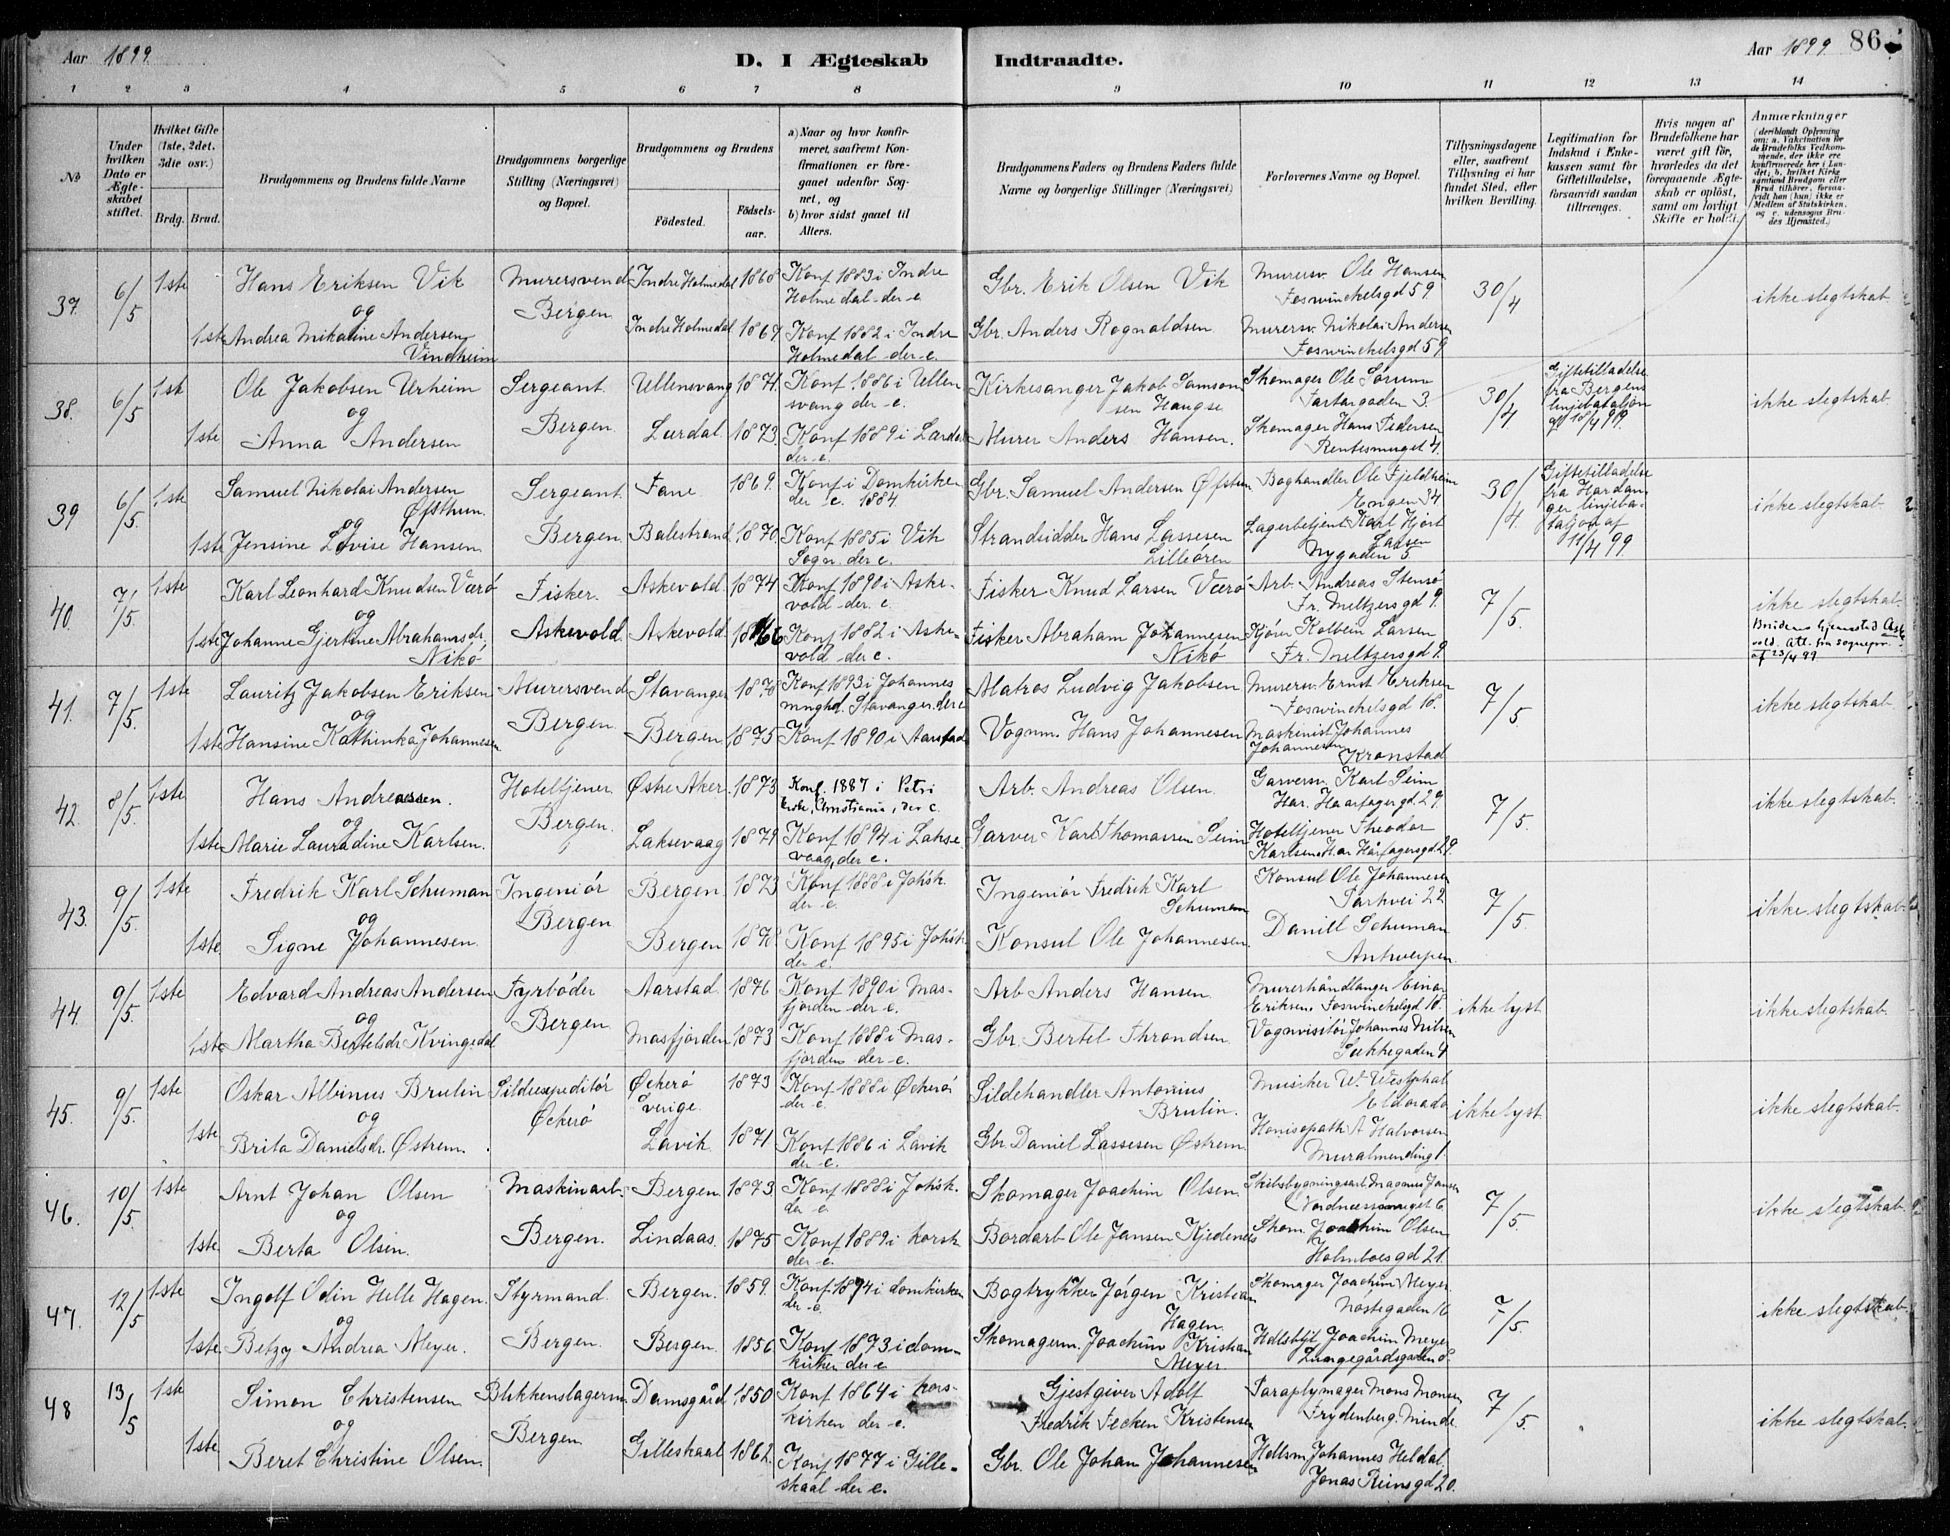 Aar 1899.
D. I Ægteskab Indtraadte.
Aar 1899. 86.
1 2 3 4 5 6 7 8 9 10 11 12 13 14
No
Under hvilken Dato er Ægteskabet stiftet.
Hvilket Gifte (1ste, 2det, 3die osv.)
Brdg. Brud.
Brudgommens og Brudens fulde Navne
Brudgommens borgerlige Stilling (Næringsvei) og Bopæl.
Brudgommens og Brudens
Fødested.
Fødselsaar.
a) Naar og hvor konfirmeret, saafremt Konfirmationen er foregaaet udenfor Sognet, og
b) hvor sidst gaaet til Alters.
Brudgommens Faders og Brudens Faders fulde Navne og borgerlige Stillinger (Næringsvei)
Forlovernes Navne og Bopæl.
Tillysningsdagene eller, saafremt Tillysning ei har fundet Sted, efter hvilken Bevilling.
Legitimation for Indskud i Enkekassen samt for Giftetilladelse, forsaavidt saadan tiltrænges.
Hvis nogen af Brudefolkene har været gift før, hvorledes da det foregaaende Ægteskab er opløst, samt om lovligt Skifte er holdt.
Anmærkninger
(deriblandt Oplysning om: a. Vakcination for de Brudefolks Vedkommende, der ikke ere konfirmerede her i Landet; b. hvilket Kirkesamfund Brudgom eller Brud tilhører, forsaavidt han (hun) ikke er Medlem af Statskirken, og c. udensogns Brudes Hjemsted.)
37. 6/5 1ste Hans Eriksen Vik Murersvend Indre Holmedal 1868 Konf 1883 i Indre Holmedal der c. Gbr. Erik Olsen Vik Murersv. Ole Hansen Foswinckelsgd 59. 30/4 ikke slegtskab
og Bergen
1ste Andrea Mikaline Andersen Vindheim Indre Holmedal 1867 Konf 1882 i Indre Holmedal der c. Gbr. Anders Rognaldsen Murersv. Nikolai Andersen Foswinckelsgd 59
38. 6/5 1ste Ole Jakobsen Urheim Sergeant Ullensvang 1871. Konf 1886 i Ullensvang der c. Kirkesanger Jakob Samsonsen Haugse Skomager Ole Sørum Tartargaden 3. 30/4 Giftetilladelse fra Bergens linjebataljon af 18/4 99. ikke slegtskab
og Bergen
1ste Anna Andersen Lærdal 1873 Konf 1889 i Lærdal der c. Murer Anders Hansen. Skomager Hans Pedersen Rentesmuget 4.
39 6/5. 1ste Samuel Nikolai Andersen Øfsthun. Sergeant Fane 1869. Konf i Domkirken der c. 1884. Gbr. Samuel Andersen Øfsthun Boghandler Ole Fjeldheim Engen 34 30/4. Giftetilladelse fra Hardanger linjebataljon af 11/4 99 ikke slegtskab
og Bergen
1ste Jensine Lovise Hansen Balestrand 1870. Konf 1885 i Vik Sogn. der c. Strandsidder Hans Lassesen Lilleøren Lagerbetjent Karl Hjort Larsen Nygaden 5
40 7/5. 1ste Karl Leonhard Knudsen Værø Fisker. Askevold 1874 Konf 1890 i Askevold der c. Fisker Knud Larsen Værø Arb. Andreas Stensø Fr. Meltzersgd 9. 7/5 ikke slegtskab.
og Askevold
1ste Johanne Gjertine Abrahamsdr. Nikø Askevold 1866 Konf 1882 i Askevold der c. Fisker Abraham Johannesen Nikø Kjører Kolbein Larsen Fr. Meltzersgd 9. Brudens Hjemsted Askevold. Att. fra sognepr. af 23/4 99
41. 7/5. 1ste Lauritz Jakobsen Eriksen Murersvend Stavanger 1878 Konf 1893 i Johannes mnghd. Stavanger. der c Matros Ludvig Jakobsen Murersv. Ernst Eriksen Foswinckelsgd 18. 7/5 ikke slegtskab
og Bergen.
1ste Hansine Kathinka Johannesen Bergen 1875 Konf 1890 i Aarstad Vognm. Hans Johannesen Maskinist Johannes Johannesen Kronstad
42. 8/5. 1ste Hans Andreassen. Hoteltjener Østre Aker. 1873 Konf. 1887 i Petri kirke, Christiania, der c. Arb. Andreas Olsen. Garversv. Karl Seim Har. Haarfagergd. 29. 7/5. ikke slegtskab.
og Bergen.
1ste Marie Lauradine Karlsen. Laksevaag 1879. Konf 1894 i Laksevaag, der c. Garver Karl Thomassen Seim Hoteltjener Theodor Karlsen Har Hårfagersgd. 29.
43. 9/5. 1ste Fredrik Karl Schuman Ingeniør Bergen 1873 Konf 1888 i Johsk. der c. Ingeniør Fredrik Karl Schuman Konsul Ole Johannesen Parkvei 22 7/5. ikke slegtskab
og Bergen
1ste Signe Johannesen. Bergen 1878. Konf 1895 i Johsk. der c. Konsul Ole Johannesen. Daniel Schuman Antwerpen.
44. 9/5. 1ste Edvard Andreas Andersen Fyrbøder Aarstad 1876 Konf 1890 i Masfjorden der c. Arb Anders Hansen Murerhåndlanger Einar Eriksen Foswinckelsgd 18. ikke lyst ikke slegtskab
og Bergen
1ste Martha Bertelsdr. Kvingedal Masfjorden 1873 Konf 1888 i Masfjorden der c. Gbr. Bertel Throndsen. Vognvisitør Johannes Nilsen Sukkegaden 4
45. 9/5. 1ste Oskar Albinus Brulin Sildeexpeditør Öckerö Sverige 1873 Konf 1888 i Öckerö der c. Sildehandler Antonius Brulin. Musiker W. Westphal Eldorado ikke lyst ikke slegtskab
og Öckerö
1ste Brita Danielsdr. Østrem. Lavik 1871 Konf 1886 i Lavik der c. Gbr Daniel Lassesen Østrem Homøopath A Halvorsen Muralmending 1.
46. 10/5. 1ste Arnt Johan Olsen Maskinarb. Bergen 1873 Konf 1888 i Johsk. der c. Skomager Joachim Olsen. Skibsbygningsarb Magnus Jansen Nordnessmuget 6 7/5. ikke slegtskab
og Bergen.
1ste Berta Olsen. Lindaas 1875 Konf 1889 i korsk der c. Bordarb Ole Jansen Skom. Joachim Olsen Holmboesgd 21.
47. 12/5 1ste Ingolf Odin Helle Hagen. Styrmand. Bergen. 1859. Konf 1874 i domkirken der c. Bogtrykker Jørgen Kristian Hagen. Skomager Joachim Meyer Nøstegaden 16 7/5. ikke slegtskab
og Bergen.
1ste Betzy Andrea Meyer. Bergen. 1856 Konf 1873 i domkirken der c Skomagerm. Joachim Kristian Meyer Hdlsbtjt Joachim Meyer Lungegårdsgaden 8.
48 13/5 1ste Simon Christensen Blikkenslagersv. Damsgård 1850 Konf 1864 i korskirken der c. Gjestgiver Adolf Fredrik Fecken Kristensen Paraplymager Mons Monsen Frydenberg. Minde. 7/5. ikke slegtskab.
og Bergen
1ste Beret Christine Olsen. Gilleskaal 1862. Konf 1877 i Gilleskaal der c. Gbr. Ole Johan Johannesen Hdlsm Johannes Heldal Jonas Reinsgd 20.